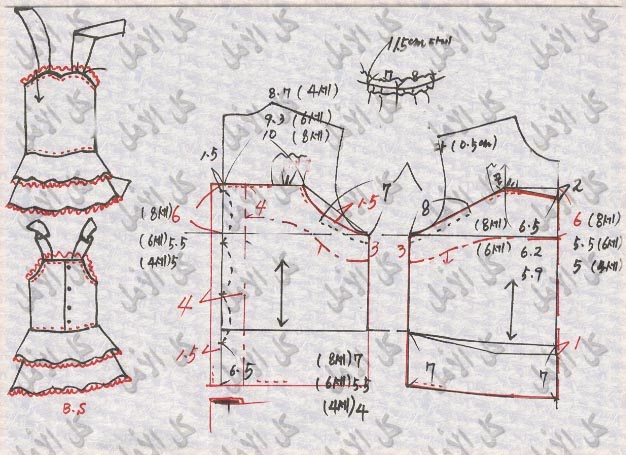 1.5cm
8
8.7 (4세)
9.3 (6세)
10 (8세)
1.5
(0.5cm)
7
1.5
8
2
4
(8세) 6
(8세) 6.5
6 (8세)
(6세) 5.5
3
3
(6세) 6.2
5.5 (6세)
(4세) 5
5.9
5 (4세)
4
1.5
1
6.5
(8세) 7
7
7
(6세) 5.5
(4세) 4
B.S
كل الأمل